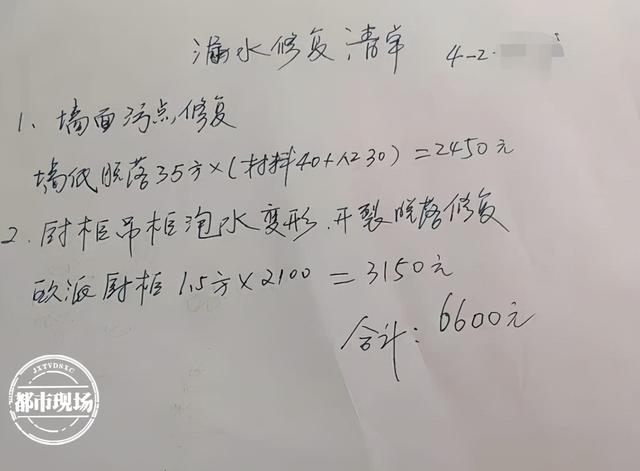 漏水修复清单 4-2
1、墙面污点修复
墙纸脱落35方×(材料40+人工30)=2450元
2、厨柜吊柜泡水变形.开裂脱落修复
欧派厨柜1.5方×2100=3150元
合计:6600元
JXTVDSXC
都市现场